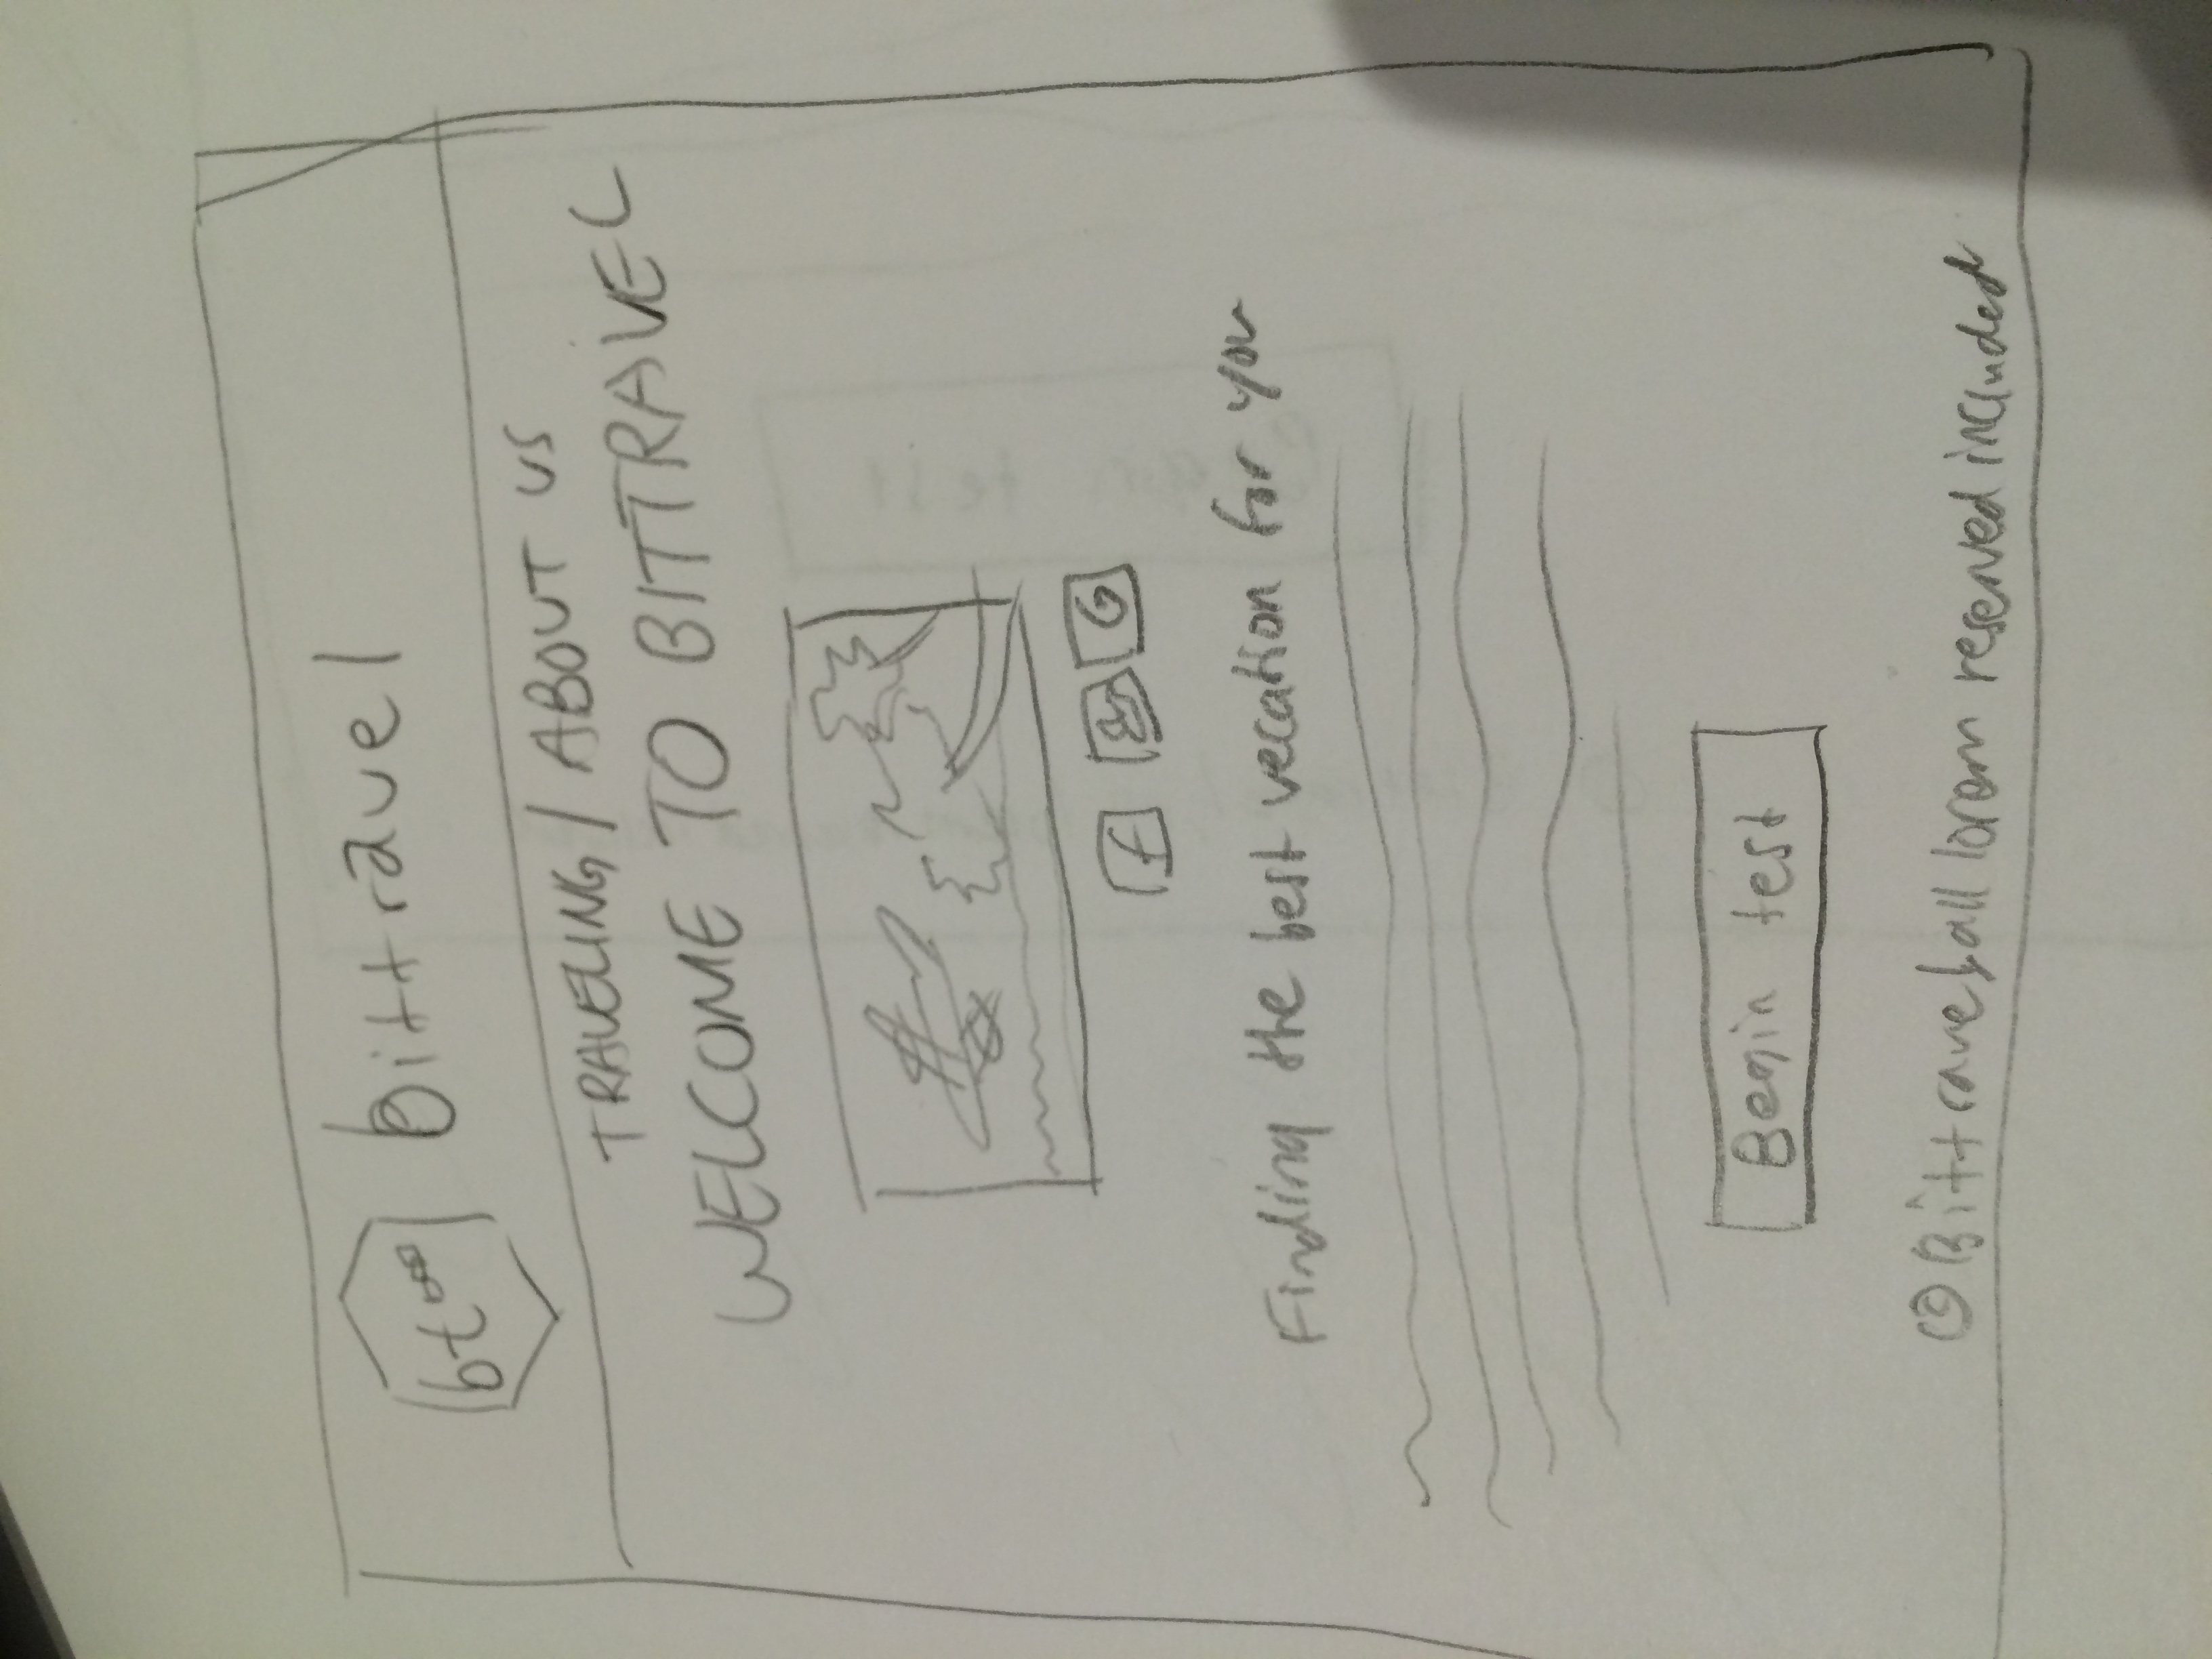 bt
bittravel
TRAVELING / ABOUT US
WELCOME TO BITTRAVEL
f
G
Finding the best vecation for you
Begin test
© Bittravel all lorem reserved included